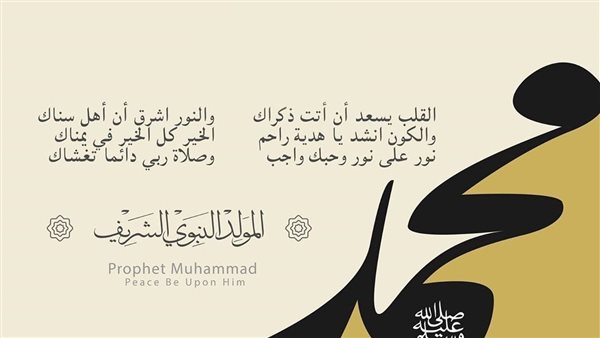 القلب يسعد أن أتت ذكراك والنور اشرق أن أهل سناك
والكون انشد يا هدية راحم الخير كل الخير في يمناك
نور على نور وحبك واجب وصلاة ربي دائما تغشاك
المولد النبوي الشريف
Prophet Muhammad
Peace Be Upon Him
محمد
صلى الله عليه وسلم